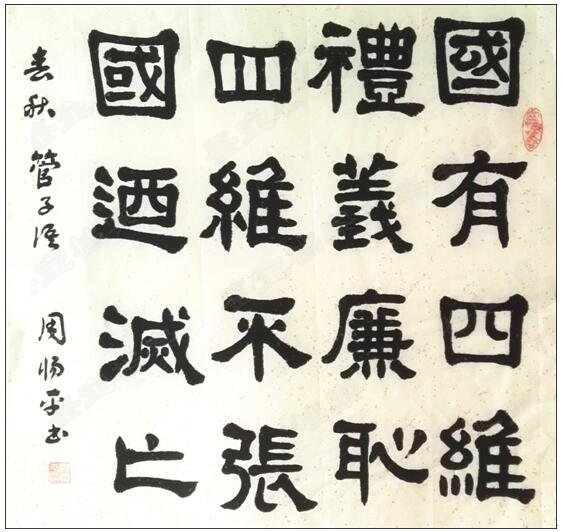 國有四維
禮義廉恥
四維不張
國迺滅亡
春秋 管子语 周 平书